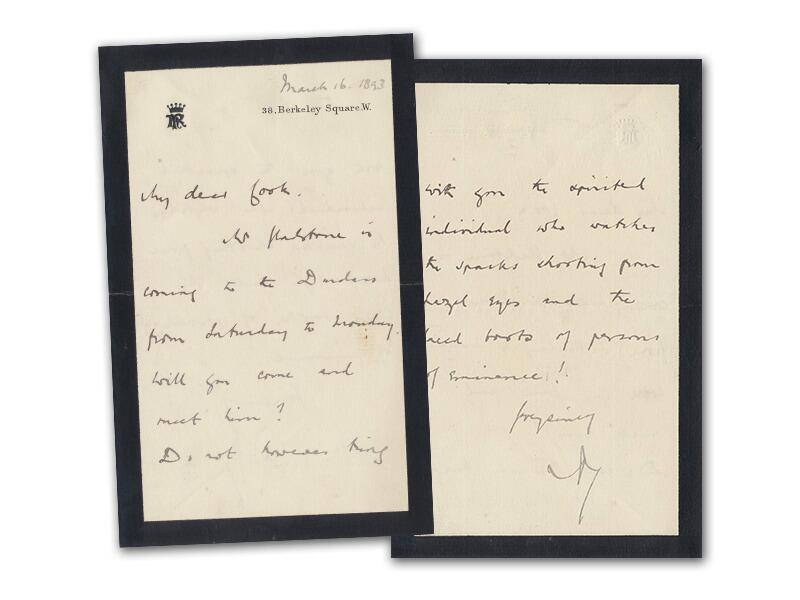 March 16. 1893
38, Berkeley Square. W.
My dear Cook.
Mr Gladstone is
coming to the Durdans
from Saturday to Monday.
Will you come and
meet him?
Do not however bring
with you the spirited
individual who watches
the sparks shooting from
hazel eyes and the
laced boots of persons
of eminence!
AR